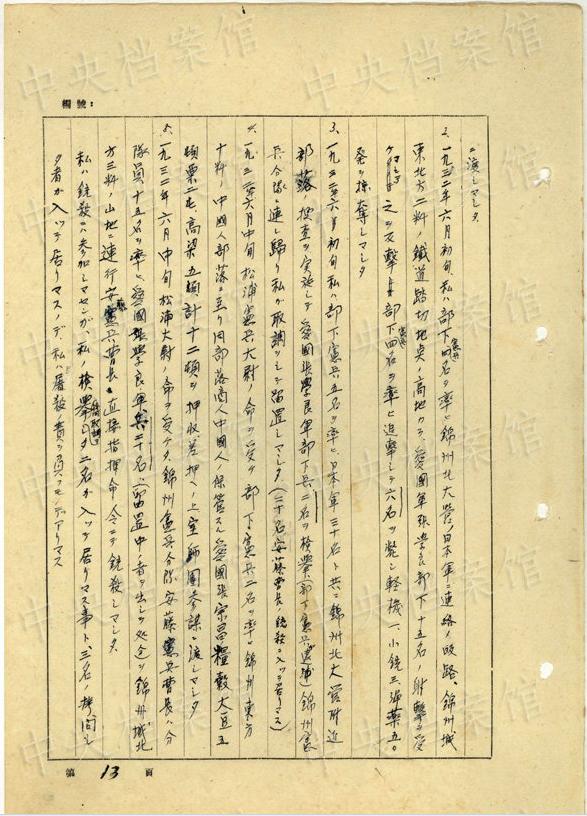 編號：
ニ渡シマシタ
2、一九三二年六月初旬、私ハ部下憲兵四名ヲ率ヒ錦州北大営ノ日本軍ニ連絡ノ帰路、錦州城
東北方二粁ノ鉄道踏切地点ノ高地カラ、愛國軍張学良部下十五名ノ射撃ヲ受
ケマシタ之ヲ反撃シ部下憲兵四名ヲ率ヒ追撃シテ六名ヲ斃シ軽機一、小銃三弾薬五〇
発ヲ掠奪シマシタ
3、一九三二年六月初旬私ハ部下憲兵五名ヲ率ヒ日本軍三十名ト共ニ錦州北大営附近
部落ノ捜査ヲ実施シテ愛國張學良軍部下兵二名ヲ検挙、部下憲兵逮捕錦州憲
兵分隊ニ連レ帰リ私ガ取調ヲシテ留置シマシタ（二十名安藤曹長ノ銃殺ニ入ッテ居リマス）
4、一九三二年六月中旬松浦憲兵大尉ノ命ヲ受ケ部下憲兵二名ヲ率ヒ錦州東方
十粁ノ中國人部落ニ至リ同部落商人中國人ノ保管スル愛國張宗昌糧穀大豆五
頓粟二屯高粱五頓計十二頓ヲ押収差押ヘノ上室師團参謀ニ渡シマシタ
5、一九三二年六月中旬松浦大尉ノ命ヲ受ケタ錦州憲兵分隊安藤憲兵曹長ハ分
隊員十五名ヲ率ヒ愛國張學良軍兵二十名ヲ留置中ノ者ヲ出シテ処分ヲ錦州城北
方三粁ノ山地ニ連行安藤憲兵曹長ハ直接指揮命令シテ銃殺シマシタ、
私ハ銃殺ニハ参加シマセンガ、私ノ検挙シタ二名ガ入ッテ居リマス事ト、三名ノ拷問シ
タ者ガ入ッテ居リマスノデ、私ハ屠殺ノ責ヲ負フモノデアリマス
第 13 頁
中央档案馆